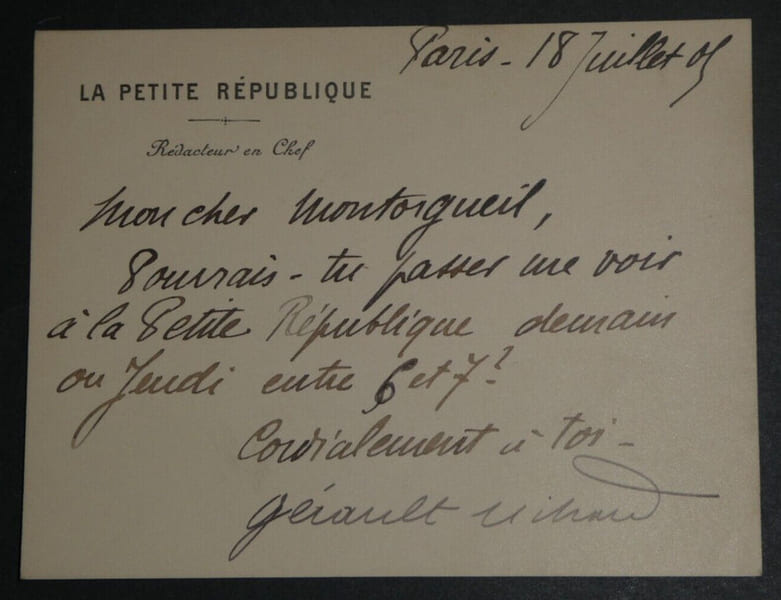 Paris - 18 Juillet 05
LA PETITE RÉPUBLIQUE
Rédacteur en Chef
Mon cher Montorgueil,
Pourrais-tu passer me voir
à la Petite République demain
ou Jeudi entre 6 et 7?
Cordialement à toi -
Gérault Richard